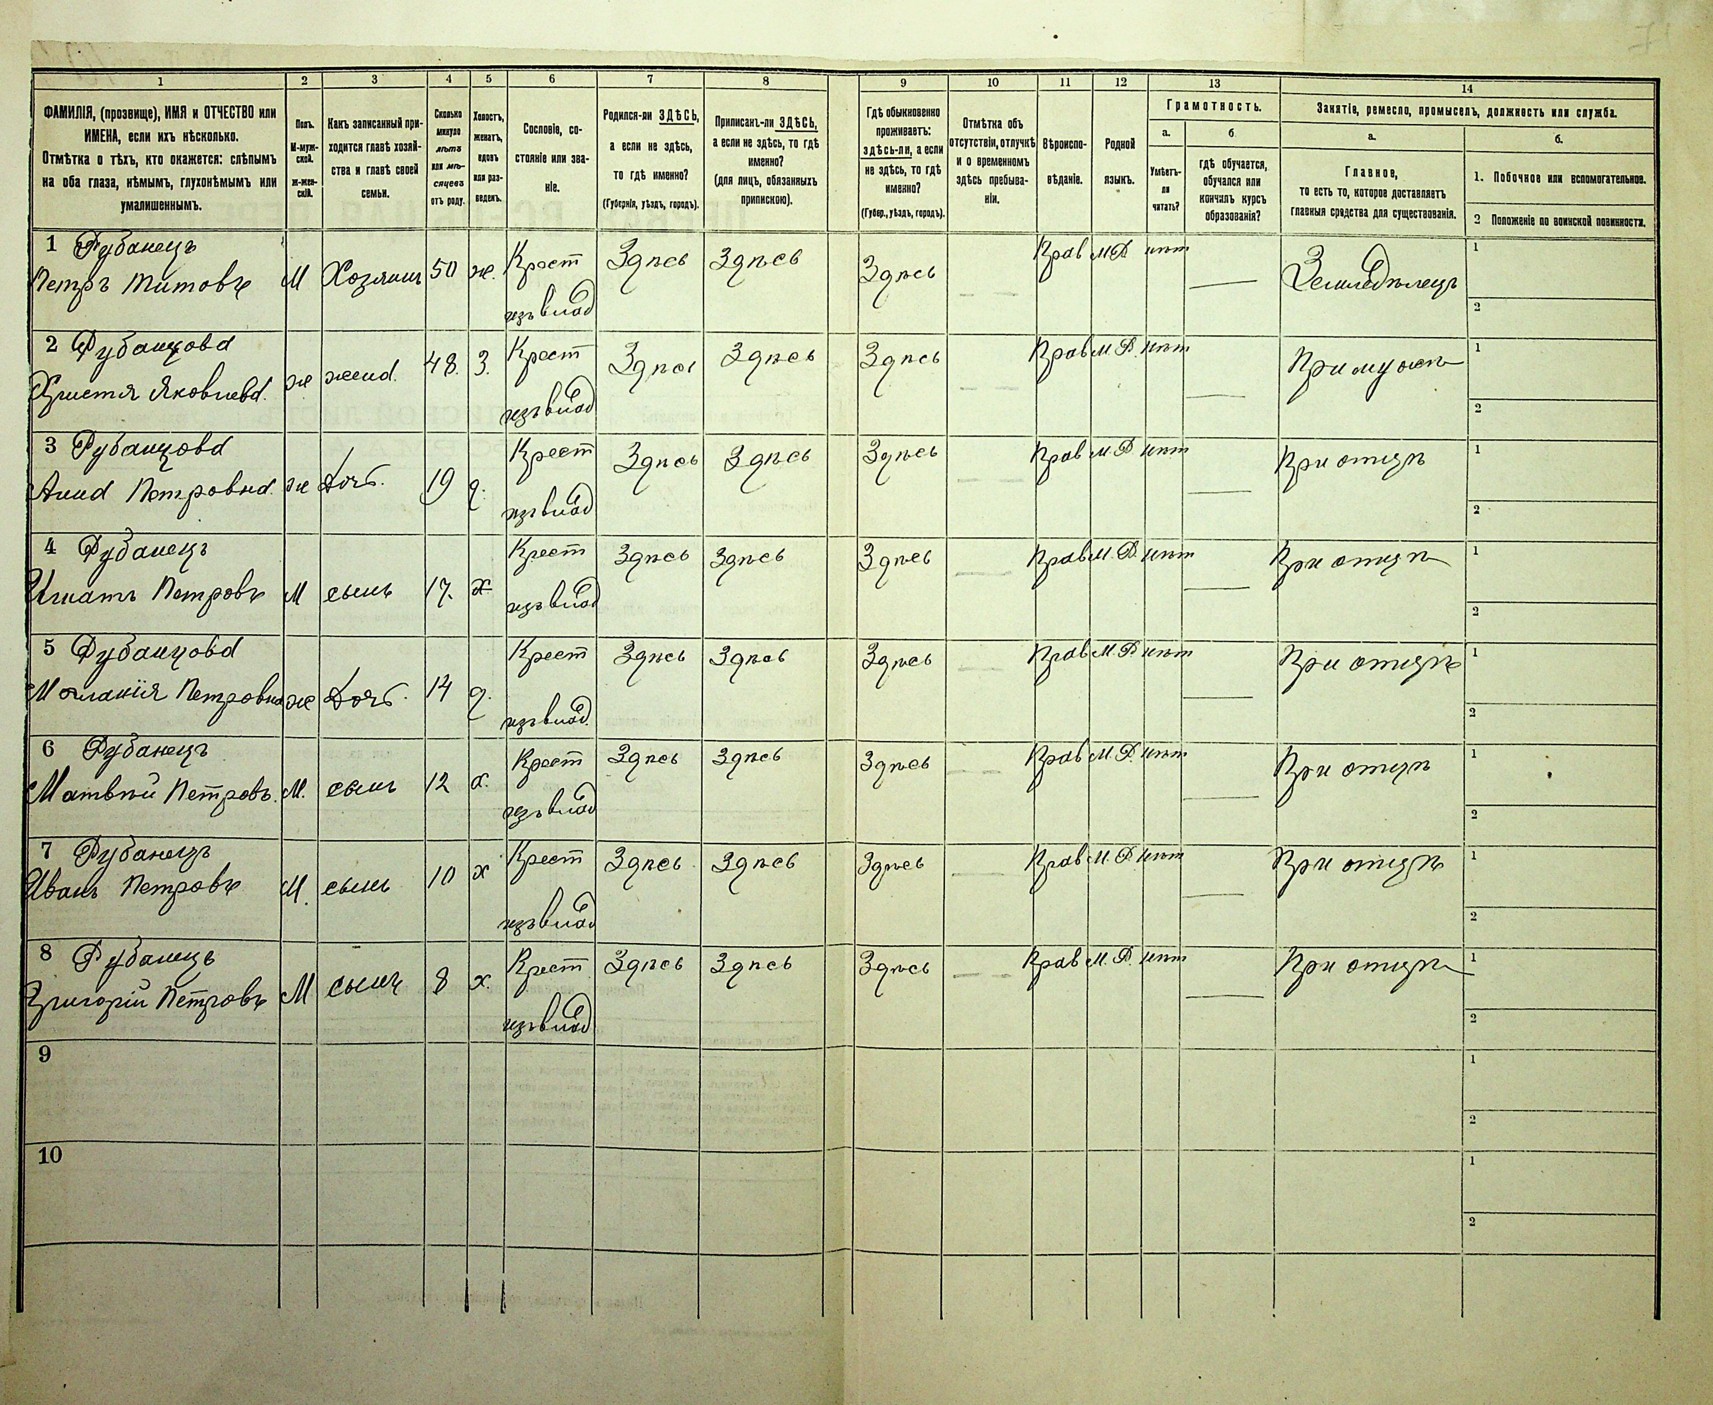 1 2 3 4 5 6 7 8 9 10 11 12 13 14
ФАМИЛІЯ, (прозвище), ИМЯ и ОТЧЕСТВО или ИМЕНА, если ихъ нѣсколько.
Отмѣтка о тѣхъ, кто окажется: слѣпымъ на оба глаза, нѣмымъ, глухонѣмымъ или умалишеннымъ.
Полъ. М-мужской. Ж-женскій.
Какъ записанный приходится главѣ хозяйства и главѣ своей семьи.
Сколько минуло лѣтъ или мѣсяцевъ отъ роду.
Холостъ, женатъ, вдовъ или разведенъ.
Сословіе, состояніе или званіе.
Родился-ли ЗДѢСЬ, а если не здѣсь, то гдѣ именно?
(Губернія, уѣздъ, городъ).
Приписанъ-ли ЗДѢСЬ, а если не здѣсь, то гдѣ именно?
(для лицъ, обязанныхъ припискою).
Гдѣ обыкновенно проживаетъ: здѣсь-ли, а если не здѣсь, то гдѣ именно?
(Губер., уѣздъ, городъ).
Отмѣтка объ отсутствіи, отлучкѣ и о временномъ здѣсь пребываніи.
Вѣроисповѣданіе.
Родной языкъ.
Грамотность.
а. Умѣетъ-ли читать?
б. гдѣ обучается, обучался или кончилъ курсъ образованія?
Занятіе, ремесло, промыселъ, должность или служба.
а. Главное, то есть то, которое доставляетъ главныя средства для существованія.
б.
1. Побочное или вспомогательное.
2 Положеніе по воинской повинности.
1 Рубанецъ
Петръ Титовъ М Хозяинъ 50 ж. Крест изъ влад Здѣсь Здѣсь Здѣсь — — Прав М Р нѣт — Земледѣлецъ 1 2
2 Рубанцова
Христя Яковлева ж жена. 48. З. Крест изъ влад Здѣсь Здѣсь Здѣсь — — Прав М. Р. нѣт — При мужѣ 1 2
3 Рубанцова
Анна Петровна ж Дочь. 19 д. Крест изъ влад Здѣсь Здѣсь Здѣсь — — Прав М. Р нѣт — При отцѣ 1 2
4 Рубанецъ
Игнатъ Петровъ М сынъ 17. х Крест изъ влад Здѣсь Здѣсь Здѣсь — — Прав М. Р. нѣт — При отцѣ 1 2
5 Рубанцова
Петровна ж Дочь. 14 д. Крест изъ влад. Здѣсь Здѣсь Здѣсь — — Прав М. Р. нѣт — При отцѣ 1 2
6 Рубанецъ
Матвѣй Петровъ. М. сынъ 12 х. Крест изъ влад Здѣсь Здѣсь Здѣсь — — Прав М. Р. нѣт — При отцѣ 1 2
7 Рубанецъ
Иванъ Петровъ М. сынъ 10 х Крест изъ влад Здѣсь Здѣсь Здѣсь — — Прав М. Р. нѣт — При отцѣ 1 2
8 Рубанецъ
Григорій Петровъ М сынъ 8 х. Крест изъ влад Здѣсь Здѣсь Здѣсь — — Прав М. Р. нѣт — При отцѣ 1 2
9 1 2
10 1 2